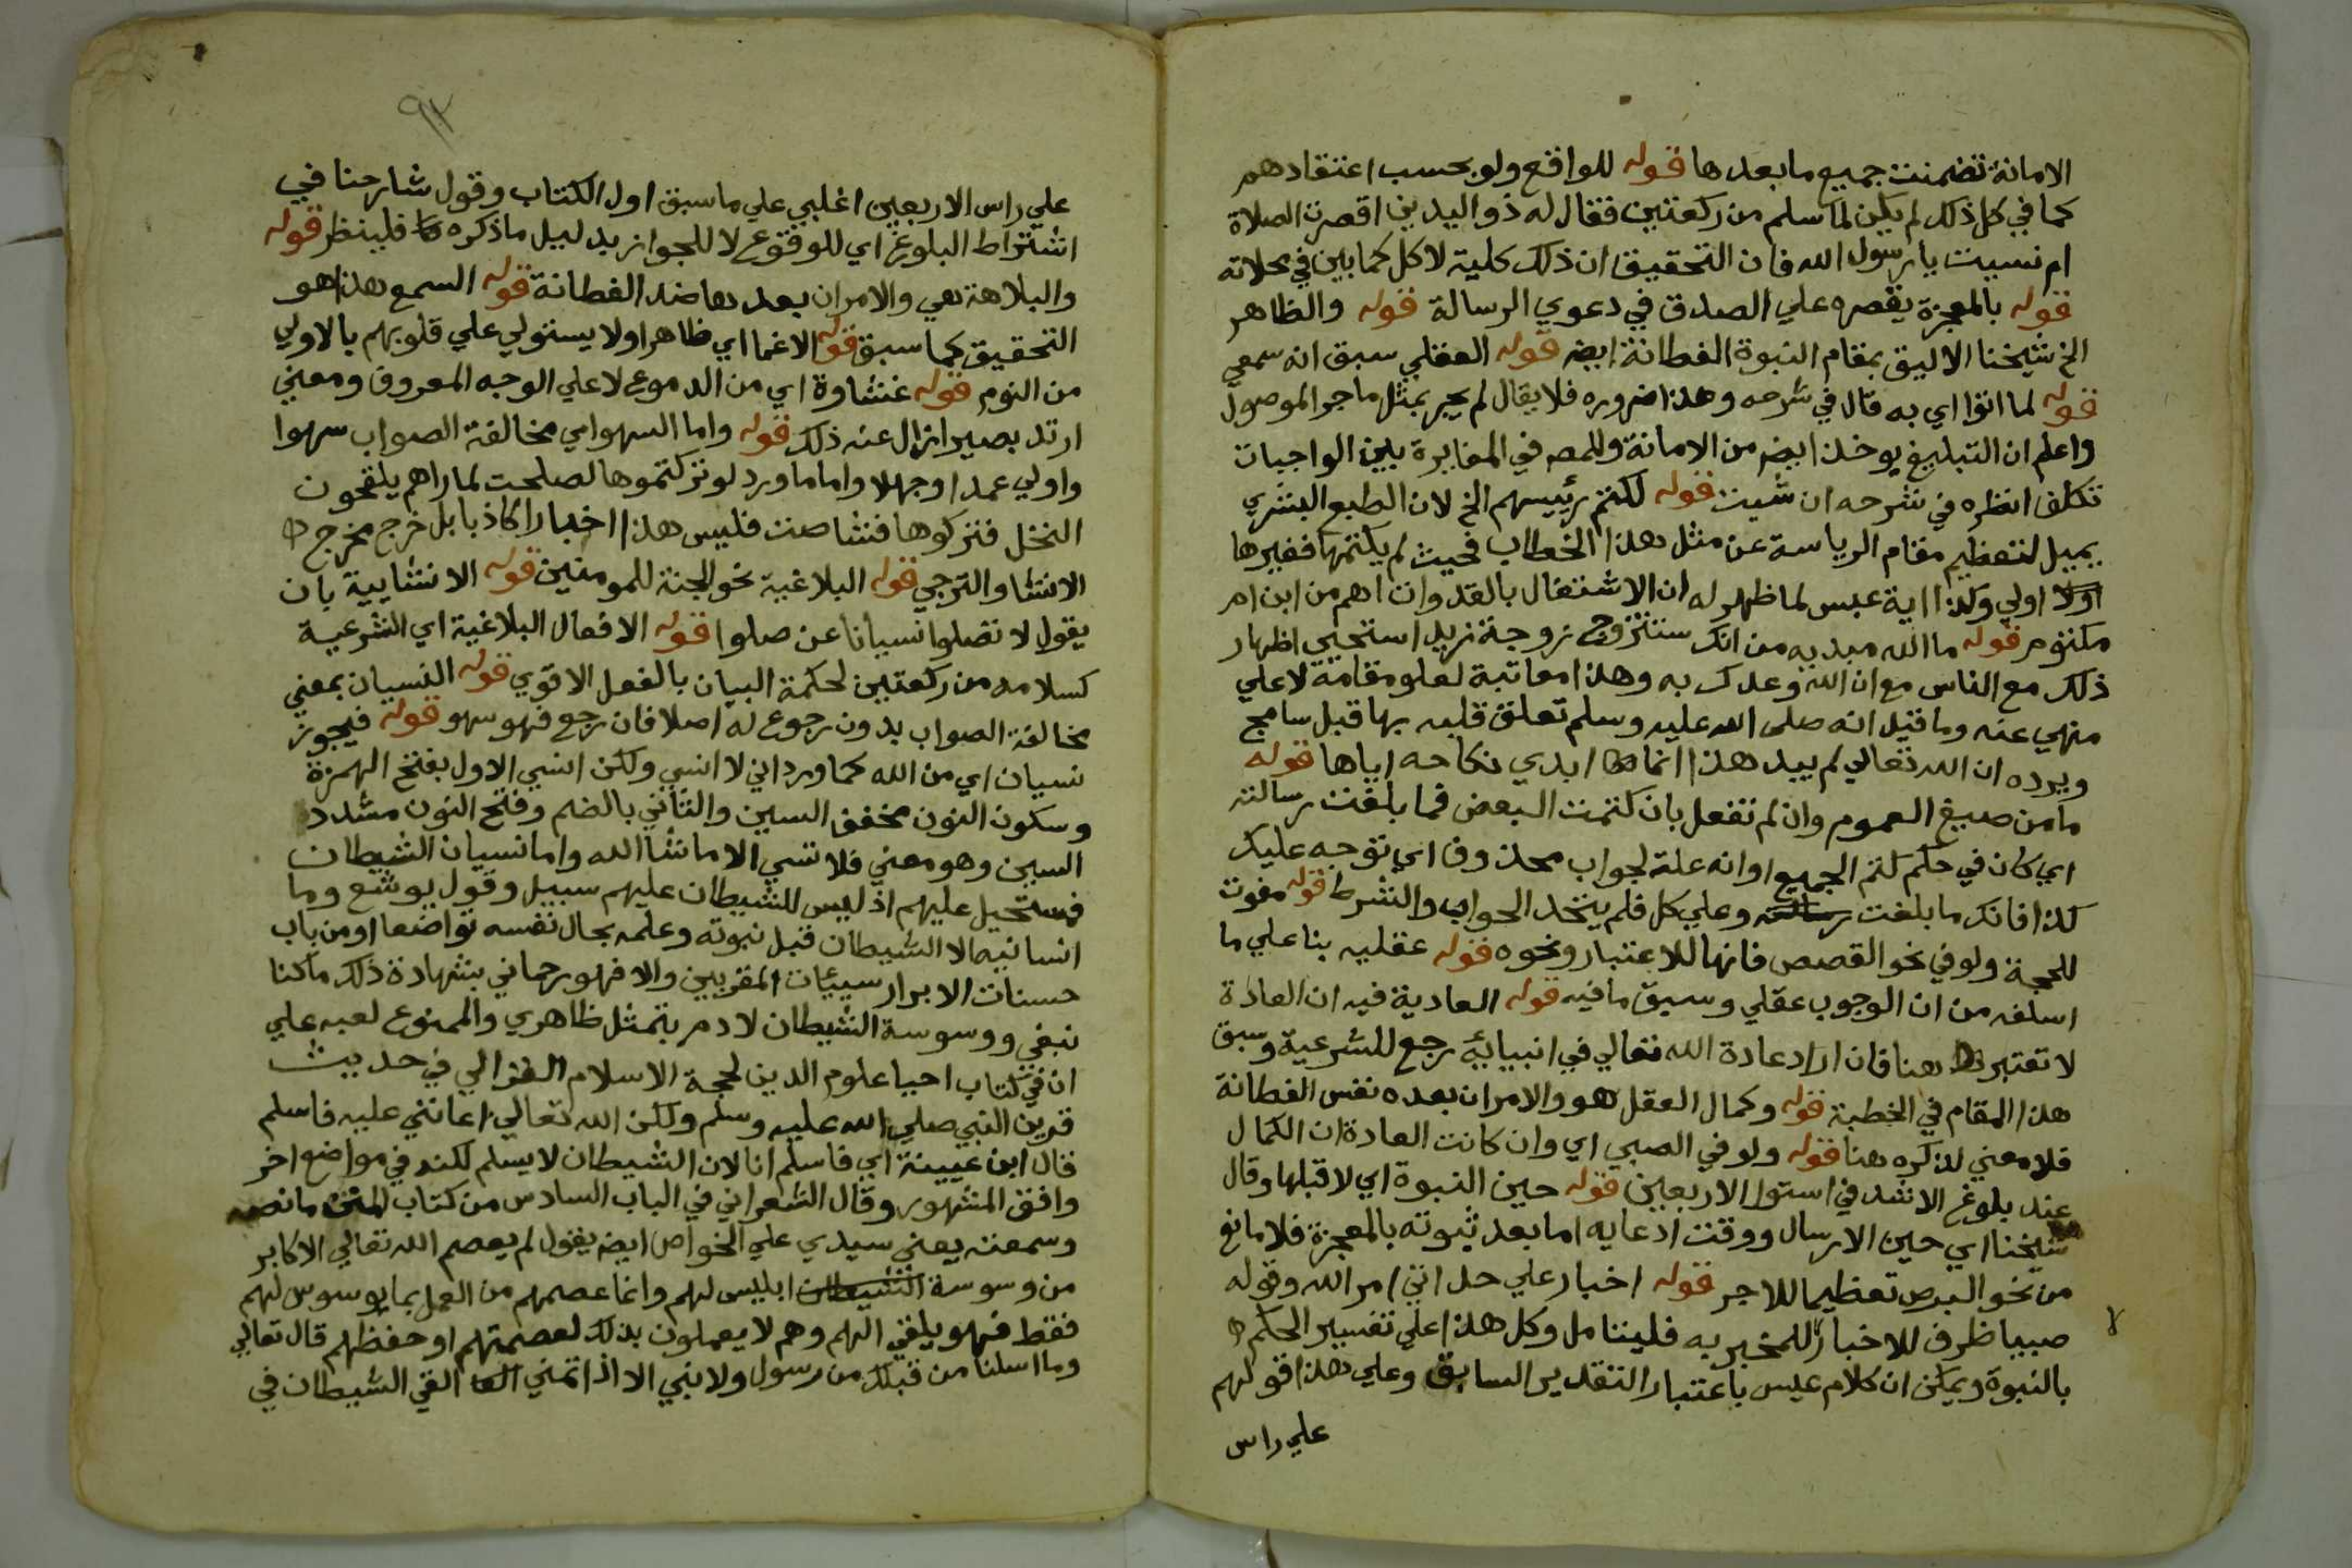 الامانة تضمنت جميع ما بعدها قوله للواقع ولو بحسب اعتقادهم
كما في كل ذلك لم يكن لما سلم من ركعتين فقال له ذو اليدين اقصرت الصلاة
ام نسيت يا رسول الله فان التحقيق ان ذلك كلية لا كل كما بين في محلاته
قوله بالمعجزة يقصره علي الصدق في دعوي الرسالة قوله والظاهر
الخ شيخنا الاليق بمقام النبوة الفطانة ايضه قوله العقلي سبق انه سمعي
قوله لما اتوا اي به قال في شرحه وهذا ضروره فلا يقال لم يجر بمثل ما جر الموصول
واعلم ان التبليغ يوخذ ايضه من الامانة وللمصه في المغايرة بين الواجبات
تكلف انظره في شرحه ان شيت قوله لكتم رئيسهم الخ لان الطبع البشري
يميل لتعظيم مقام الرياسة عن مثل هذا الخطاب فحيث لم يكتمها فغيرها
اولي وكذا اية عبس لما ظهر له ان الاشتغال بالعدوان اهم من ابن ام
مكتوم قوله ما الله مبديه من انك ستتزوج زوجة زيد استحيي اظهار
ذلك مع الناس مع ان الله وعدك به وهذا معاتبة لعلو مقامه لا علي
منهي عنه وما قيل انه صلى الله عليه وسلم تعلق قلبه بها قبل سامج
ويرده ان الله تعالي لم يبد هذا انما ابدي نكاحه اياها قوله
ما من صيغ العموم وان لم تفعل بان كتمت البعض فما بلغت رسالته
اي كان في حكم كتم الجميع او انه علة لجواب محذوف اي توجه عليك
كذا فانك ما بلغت رسالته وعلي كل فلم يتحد الجواب والشرط قوله مفوت
للحجة ولو في نحو القصص فانها للاعتبار ونحوه قوله عقليه بنا علي ما
اسلفه من ان الوجوب عقلي وسبق ما فيه قوله العادية فيه ان العادة
لا تعتبر هنا فان اراد عادة الله تعالي في انبيايه رجع للشرعية وسبق
هذا المقام في الخطبة قوله وكمال العقل هو والامران بعده نفس الفطانة
فلا معني لذكره هنا قوله ولو في الصبي اي وان كانت العادة ان الكمال
عند بلوغ الاشد في استوا الاربعين قوله حين النبوة اي لا قبلها وقال
شيخنا اي حين الارسال ووقت ادعايه اما بعد ثبوته بالمعجزة فلا مانع
من نحو البرص تعظيما للاجر قوله اخبار علي حد اتي امر الله وقوله
صبيا ظرف للاخبار للمخبر به فليتامل وكل هذا علي تفسير الحكم
بالنبوة ويمكن ان كلام عيسي باعتبار التقدير السابق وعلي هذا قولهم
علي راس
٩٢
علي راس الاربعين اغلبي علي ما سبق اول الكتاب وقول شارحنا في
اشتراط البلوغ اي للوقوع لا للجواز بدليل ما ذكره فلينظر قوله
والبلاهة هي والامران بعدها ضد الفطانة قوله السمع هذا هو
التحقيق كما سبق قوله الاغما اي ظاهرا ولا يستولي علي قلوبهم بالاولي
من النوم قوله غشاوة اي من الدموع لا علي الوجه المعروف ومعني
ارتد بصيرا زال عنه ذلك قوله واما السهو اي مخالفة الصواب سهوا
واولي عمدا وجهلا واما ما ورد لو تركتموها لصلحت لما راهم يلقحون
النخل فتركوها فشاصت فليس هذا اخبارا كاذبا بل خرج مخرج
الانشا والترجي قوله البلاغية نحو الجنة للمومنين قوله الانشايية بان
يقول لا تصلوا نسيانا عن صلوا قوله الافعال البلاغية اي الشرعية
كسلامه من ركعتين لحكمة البيان بالفعل الاقوي قوله النسيان بمعني
مخالفة الصواب بدون رجوع له اصلا فان رجع فهو سهو قوله فيجوز
نسيان اي من الله كما ورد اني لا انسي ولكن انسي الاول بفتح الهمزة
وسكون النون مخفف السين والثاني بالضم وفتح النون مشدد
السين وهو معني فلا تنسي الا ما شا الله واما نسيان الشيطان
فمستحيل عليهم اذ ليس للشيطان عليهم سبيل وقول يوشع وما
انسانيه الا الشيطان قبل نبوته وعلمه بحال نفسه تواضعا او من باب
حسنات الابرار سييات المقربين والا فهو رحماني بشهادة ذلك ما كنا
نبغي ووسوسة الشيطان لادم بتمثل ظاهري والممنوع لعبه علي
ان في كتاب احيا علوم الدين لحجة الاسلام الغزالي في حديث
قرين النبي صلي الله عليه وسلم ولكن الله تعالي اعانني عليه فاسلم
قال ابن عيينة اي فاسلم انا لان الشيطان لا يسلم لكنه في مواضع اخر
وافق المشهور وقال الشعراني في الباب السادس من كتاب المنن ما نصه
وسمعته يعني سيدي علي الخواص ايضه يقول لم يعصم الله تعالي الاكابر
من وسوسة الشيطان ابليس لهم وانما عصمهم من العمل بما يوسوس لهم
فقط فهو يلقي اليهم وهم لا يعملون بذلك لعصمتهم او حفظهم قال تعالي
وما ارسلنا من قبلك من رسول ولا نبي الا اذا تمني القي الشيطان في